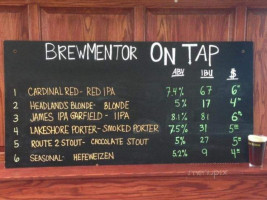 BREWMENTOR ON TAP
ABV IBU $
1 CARDINAL RED - RED IPA 7.4% 67 6
2 HEADLANDS BLONDE - BLONDE 5% 17 4
3 JAMES IPA GARFIELD - IIPA 8.1% 81 6
4 LAKESHORE PORTER - SMOKED PORTER 7.5% 31 5
5 ROUTE 2 STOUT - CHOCOLATE STOUT 5% 27 5
6 SEASONAL - HEFEWEIZEN 5.2% 9 4